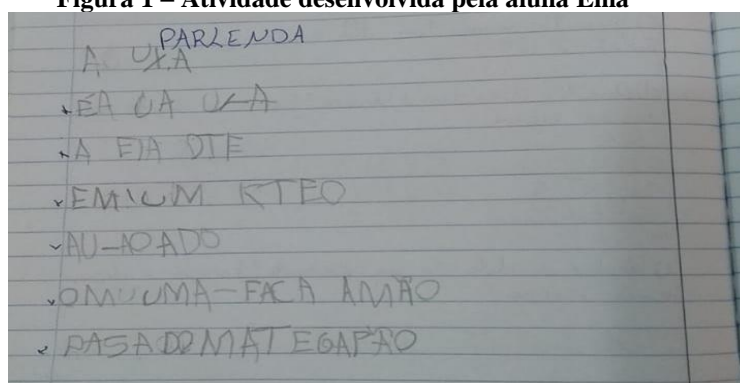 Figura 1 – Atividade desenvolvida pela aluna Ema
PARLENDA
A UXA
EA UA UXA
A EIA DTE
EMIUM KTEO
AU-AO ADO
OMUUMA-FACA AMÃO
PASADOMATEGAPÃO